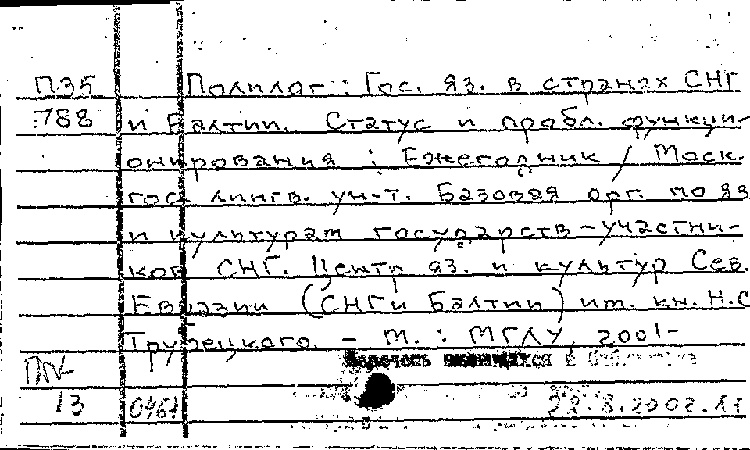 ПЭ5 Полилог : Гос. яз. в странах СНГ
788 и Балтии. Статус и пробл. функци-
онирования : Ежегодник / Моск.
гос. лингв. ун-т. Базовая орг. по яз
и культурам государств-участни-
ков СНГ. Центр яз. и культур Сев.
Евразии (СНГ и Балтии) им. кн. Н.С
Трубецкого. - М. : МГЛУ, 2001-
Перечень имеющихся в библиотеке
13